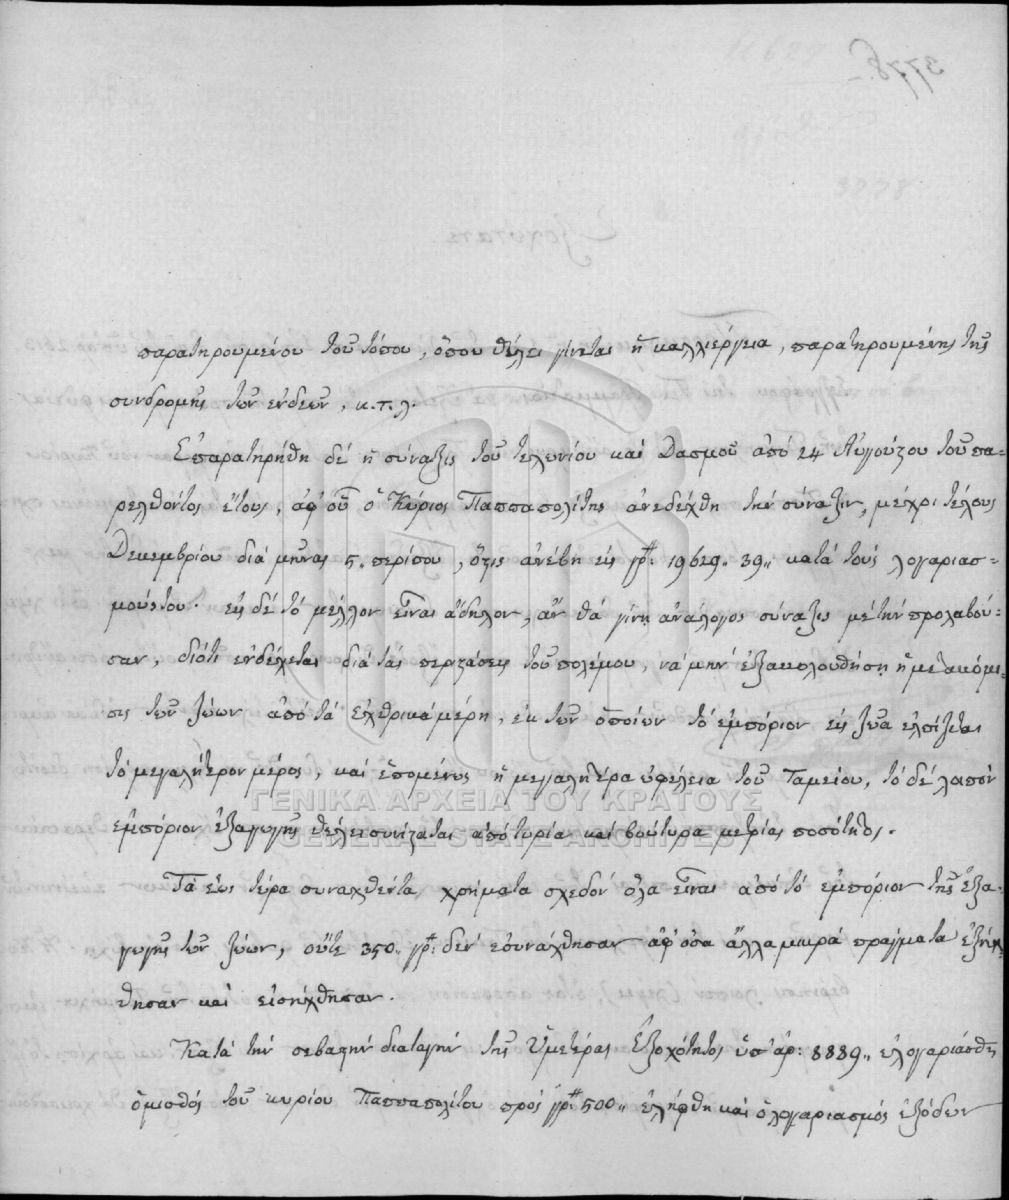 παρατηρουμένου τοῦ τόπου, ὅπου θέλει γίνεται ἡ καλλιέργεια, παρατηρουμένης τῆς
συνδρομῆς τῶν ἐνδεῶν, κ.τ.λ.
Ἐπαρατηρήθη δέ ἡ σύναξις τοῦ τελωνίου καί Δασμοῦ ἀπό 24 Αὐγούστου τοῦ πα-
ρελθόντος ἔτους, ἀφ' οὗ ὁ Κύριος Παππαπολίτης ἀνεδέχθη τήν σύναξιν, μέχρι τέλους
Δεκεμβρίου διά μῆνας 5. περίπου, ὅτις ἀνέβη εἰς γρ: 19629.. 39.. κατά τούς λογαριασ-
μούς του. εἰς δέ τό μέλλον εἶναι ἄδηλον, ἄν θά γίνῃ ἀνάλογος σύναξις μέ τήν προλαβοῦ-
σαν, διότι ἐνδέχεται διά τάς περιστάσεις τοῦ πολέμου, νά μήν ἐξακολουθήσῃ ἡ μετακόμι-
σις τῶν ζώων ἀπό τά ἐχθρικά μέρη, ἐκ τῶν ὁποίων τό ἐμπόριον εἰς ζῶα ἐλπίζεται
τό μεγαλήτερον μέρος, καί ἑπομένως ἡ μεγαλητέρα ὠφέλεια τοῦ Ταμείου, τό δέ λοιπόν
ἐμπόριον ἐξαγωγῆς θέλει συνίσταται ἀπό τυρία καί βούτυρα μετρίας ποσότητος.
ΓΕΝΙΚΑ ΑΡΧΕΙΑ ΤΟΥ ΚΡΑΤΟΥΣ
GENERAL STATE ARCHIVES
Τά ἕως τώρα συναχθέντα χρήματα σχεδόν ὅλα εἶναι ἀπό τό ἐμπόριον τῆς ἐξα-
γωγῆς τῶν ζώων, οὔτε 350.. γρ: δέν ἐσυνάχθησαν ἀφ' ὅσα ἄλλα μικρά πράγματα ἐξήχ-
θησαν καί εἰσήχθησαν.
Κατά τήν σεβαστήν διαταγήν τῆς Ὑμετέρας Ἐξοχότητος ὑπ' ἀρ: 8889.. ἐλογαριάσθη
ὁ μισθός τοῦ κυρίου Παππαπολίτου πρός γρ: 500.. ἐλήφθη καί ὁ λογαριασμός ἐξόδων